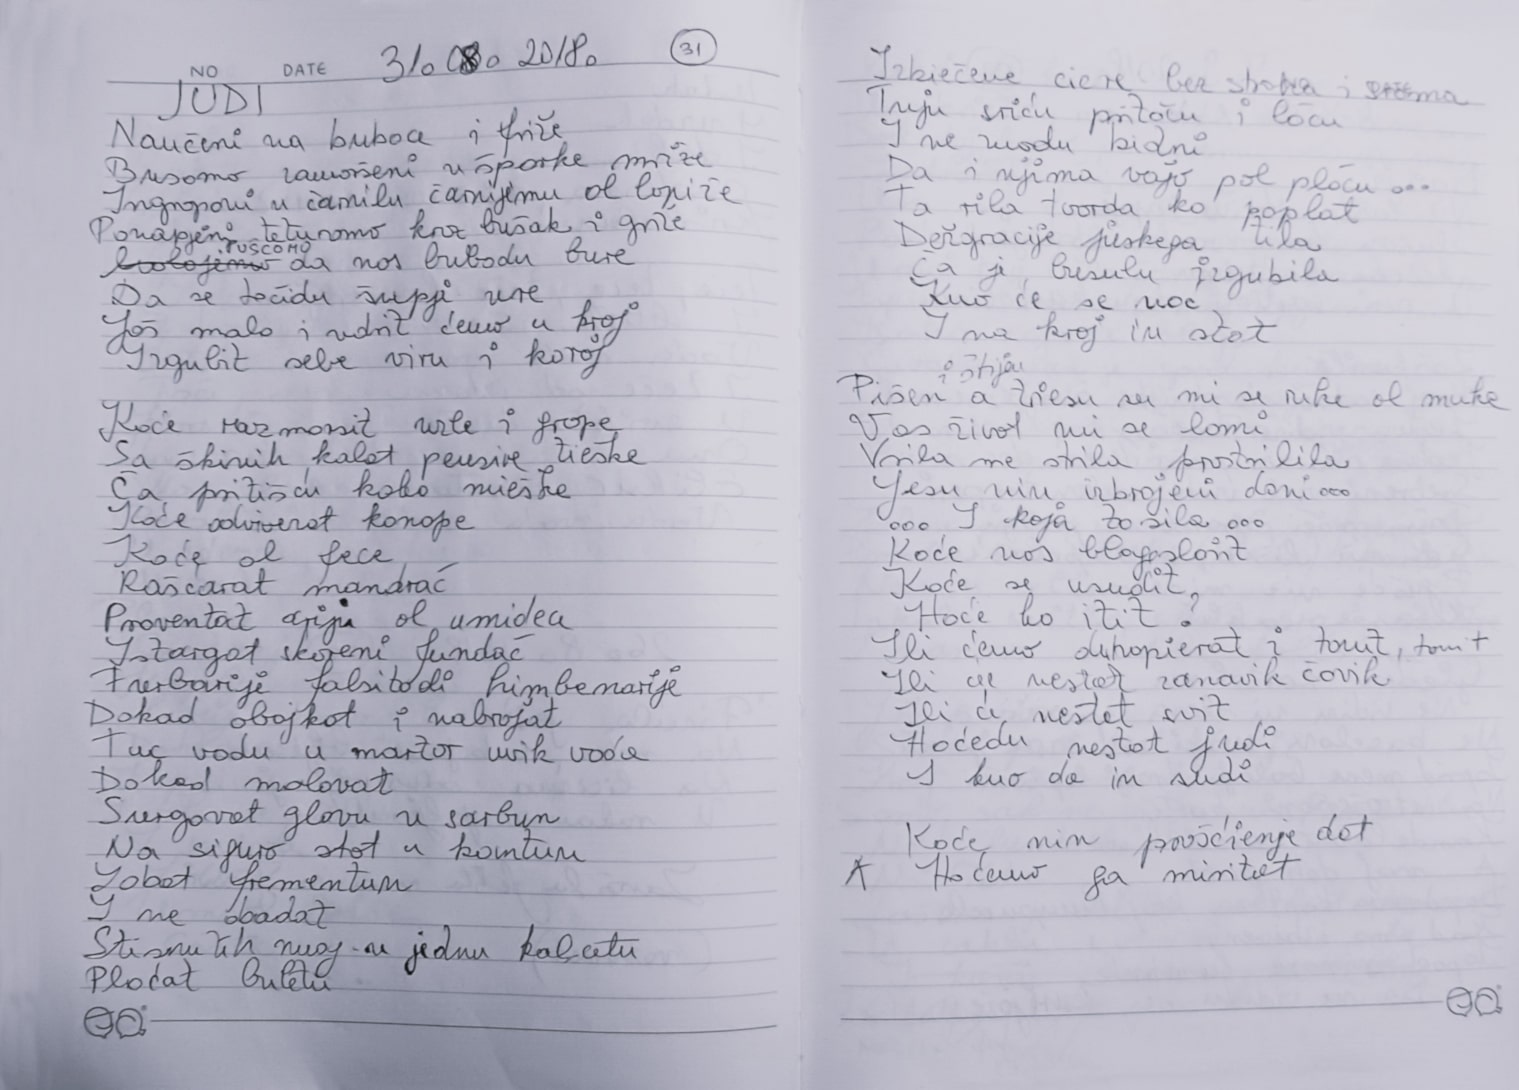 NO DATE 31. 08. 2018. 31
JUDI
Naučeni na buboce i friže
Brusomo zamoršeni u šporke mriže
Ingropani u čarnilu čarnijemu ol lopiže
Ponapjeni teturomo kroz bušak i griže
PUŠĆOMO
da nos bubodu bure
Da se točidu šupji ure
Još malo i udrit ćemo u kroj
Izgubit sebe viru i koroj
Koće razmorsit urle i grope
Sa škinih kalat pensire tieške
Ča pritišću koko mieške
Koće odviverat konope
Koće ol fece
Raščarat mandrać
Proventat ariju ol umidea
Istargat skoreni fundać
Furbarije falsitodi himbenarije
Dokad obajkot i nabrojat
Tuć vodu u martor uvik voda
Dokad molovat
Surgovat glovu u sarbun
Na siguro stot u kontun
Zobat frementun
I ne abadat
Stisnutih nuog u jednu kalcetu
Ploćat buletu
Izbiečene cicre bez straha i srama
Truju sriću pritoču i loču
I ne modu bidni
Da i njima vajo pol ploču ...
Ta rila tvorda ko poplat
Dežgracije jùskega tila
Ča ji busulu izgubila
Kuo će se noć
I na kroj in stat
i štijen
Pišen a triesu se mi se ruke ol muke
Vas život mi se lomi
Vrila me strila prostrilila
Jesu nin izbrojeni doni...
... I kojà to sila ...
Koće nos blagoslovit
Koće se usudit,
Hoće ko itit ?
Ili ćemo duhopierat i tonut, tonut
Ili će nestat zanavik čovik
Ili će nestat svit
Hoćedu nestot judi
I kuo da in sudi
Koće nin prošćienje dat
Hoćemo ga miritat